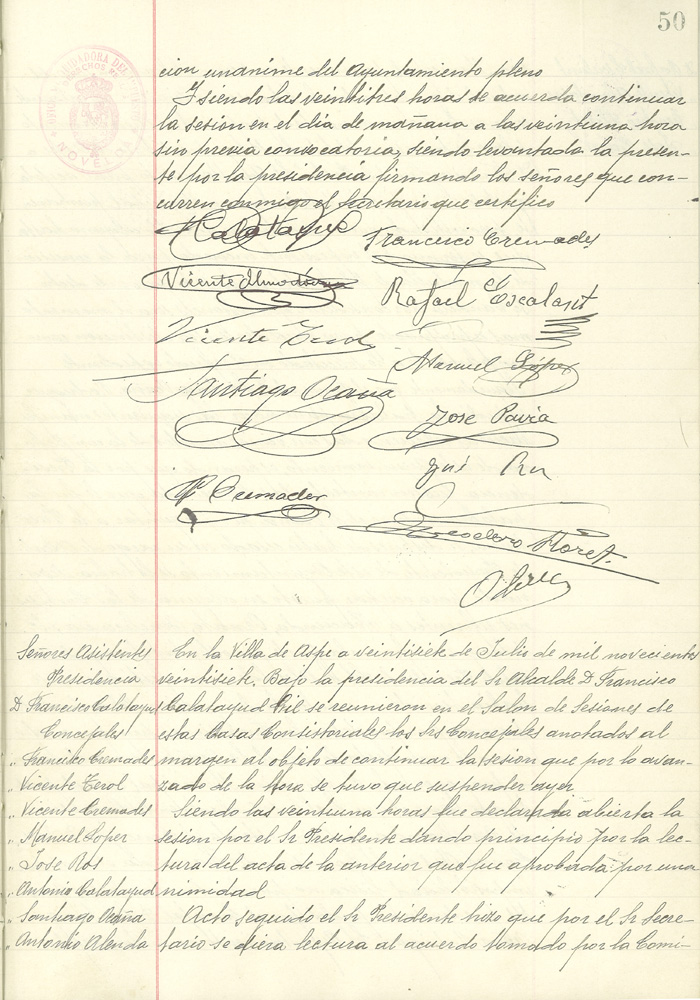 50
cion unánime del Ayuntamiento pleno
Y siendo las veintitres horas se acuerda continuar
la sesion en el dia de mañana a las veintiuna hora
sin previa convocatoria, siendo levantada la presen-
te por la presidencia firmando los señores que con-
curren conmigo el secretario que certifico
Calatayud
Francisco Cremades
Vicente
Rafael Escalant
Vicente Terol
Manuel López
Santiago Ocaña
Jose Pavia
José
Cremades
Señores Asistentes
Presidencia
D Francisco Calatayud
Concejales
„ Francisco Cremades
„ Vicente Terol
„ Vicente Cremades
„ Manuel Lopez
„ Jose Ros
„ Antonio Calatayud
„ Santiago Ocaña
„ Antonio Alenda
En la Villa de Aspe a veintisiete de Julio de mil novecientos
veintisiete. Bajo la presidencia del Sr Alcalde D Francisco
Calatayud Gil se reunieron en el Salon de Sesiones de
estas Casas Consistoriales los Srs Concejales anotados al
margen al objeto de continuar la sesion que por lo avan-
zado de la hora se tuvo que suspender ayer
Siendo las veintiuna horas fue declarada abierta la
sesion por el Sr Presidente dando principio por la lec-
tura del acta de la anterior que fue aprobada por una
nimidad
Acto seguido el Sr Presidente hizo que por el Sr Secre-
tario se diera lectura al acuerdo tomado por la Comi-